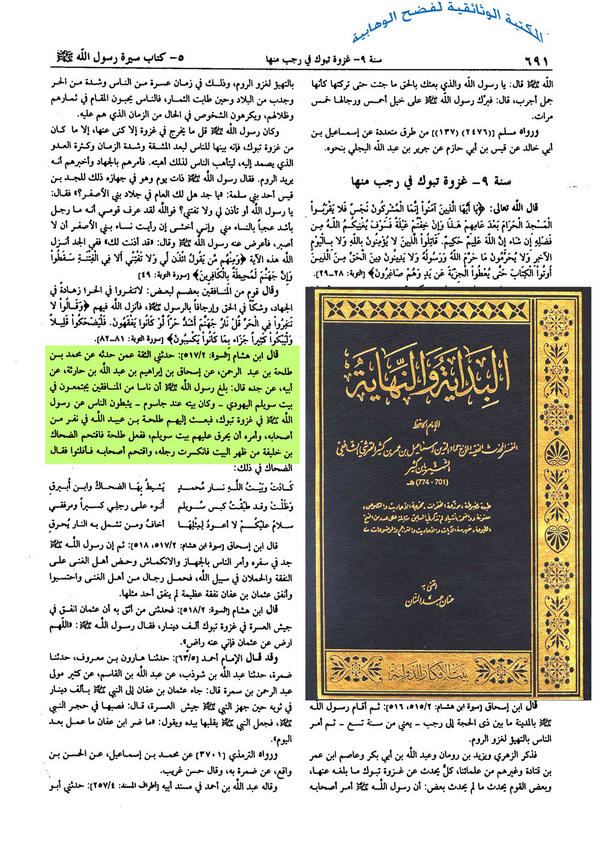 المكتبة الوثائقية لفضح الوهابية
٦٩١
سنة ٩- غزوة تبوك في رجب منها
٥- كتاب سيرة رسول الله ﷺ
الله ﷺ قال: يا رسول الله والذي بعثك بالحق ما جئت حتى تركتها كأنها
جمل أجرب، قال: فبرّك رسول الله ﷺ على خيل أحمس ورجالها خمس
مرات.
ورواه مسلم [(٢٤٧٦) (١٣٧)] من طرق متعددة عن إسماعيل بن
أبي خالد عن قيس بن أبي حازم عن جرير بن عبد الله البجلي بنحوه.
سنة ٩- غزوة تبوك في رجب منها
قال الله تعالى: ﴿يَا أَيُّهَا الَّذِينَ آمَنُوا إِنَّمَا الْمُشْرِكُونَ نَجَسٌ فَلَا يَقْرَبُوا
الْمَسْجِدَ الْحَرَامَ بَعْدَ عَامِهِمْ هَذَا وَإِنْ خِفْتُمْ عَيْلَةً فَسَوْفَ يُغْنِيكُمُ اللَّهُ مِنْ
فَضْلِهِ إِنْ شَاءَ إِنَّ اللَّهَ عَلِيمٌ حَكِيمٌ. قَاتِلُوا الَّذِينَ لَا يُؤْمِنُونَ بِاللَّهِ وَلَا بِالْيَوْمِ
الْآخِرِ وَلَا يُحَرِّمُونَ مَا حَرَّمَ اللَّهُ وَرَسُولُهُ وَلَا يَدِينُونَ دِينَ الْحَقِّ مِنَ الَّذِينَ
أُوتُوا الْكِتَابَ حَتَّى يُعْطُوا الْجِزْيَةَ عَنْ يَدٍ وَهُمْ صَاغِرُونَ﴾ [التوبة: ٢٨-٢٩].
البداية والنهاية
للإمام الحافظ
إسماعيل بن عمر بن كثير القرشي الشافعي
ابن كثير
(701 - 774) هـ
اعتنى به
حنان عبد المنان
بيت الأفكار الدولية
قال ابن إسحاق [سيرة ابن هشام: ٥١٥/٢، ٥١٦]: ثم أقام رسول الله
ﷺ بالمدينة ما بين ذي الحجة إلى رجب - يعني من سنة تسع - ثم أمر
الناس بالتهيؤ لغزو الروم.
فذكر الزهري ويزيد بن رومان وعبد الله بن أبي بكر وعاصم ابن عمر
بن قتادة وغيرهم من علمائنا، كلٌّ يحدث عن غزوة تبوك ما بلغه عنها،
وبعض القوم يحدث ما لم يحدث بعض: أن رسول الله ﷺ أمر أصحابه
بالتهيؤ لغزو الروم، وذلك في زمان عسرة من الناس وشدة من الحر
وجدب من البلاد وحين طابت الثمار، فالناس يحبون المقام في ثمارهم
وظلالهم، ويكرهون الشخوص في الحال من الزمان الذي هم عليه.
وكان رسول الله ﷺ قل ما يخرج في غزوة إلا كنى عنها، إلا ما كان
من غزوة تبوك، فإنه بينها للناس لبعد المشقة وشدة الزمان وكثرة العدو
الذي يصمد إليه، ليتأهب الناس لذلك أهبته. فأمرهم بالجهاد وأخبرهم أنه
يريد الروم. فقال رسول الله ﷺ ذات يوم وهو في جهازه ذلك للجد بن
قيس أحد بني سلمة: «يا جد هل لك العام في جلاد بني الأصفر؟» فقال:
يا رسول الله أو تأذن لي ولا تفتني؟ فوالله لقد عرف قومي أنه ما رجل
بأشد عجباً بالنساء مني وإني أخشى إن رأيت نساء بني الأصفر أن لا
أصبر، فأعرض عنه رسول الله ﷺ وقال: «قد أذنت لك» ففي الجد أنزل
الله هذه الآية ﴿وَمِنْهُمْ مَنْ يَقُولُ ائْذَنْ لِي وَلَا تَفْتِنِّي أَلَا فِي الْفِتْنَةِ سَقَطُوا
وَإِنَّ جَهَنَّمَ لَمُحِيطَةٌ بِالْكَافِرِينَ﴾ [سورة التوبة: ٤٩]
وقال قوم من المنافقين بعضهم لبعض: لا تنفروا في الحر زهادة في
الجهاد، وشكاً في الحق وإرجافاً بالرسول ﷺ، فأنزل الله فيهم ﴿وَقَالُوا لَا
تَنْفِرُوا فِي الْحَرِّ قُلْ نَارُ جَهَنَّمَ أَشَدُّ حَرًّا لَوْ كَانُوا يَفْقَهُونَ. فَلْيَضْحَكُوا قَلِيلًا
وَلْيَبْكُوا كَثِيرًا جَزَاءً بِمَا كَانُوا يَكْسِبُونَ﴾ [سورة التوبة: ٨١-٨٢].
قال ابن هشام [السيرة: ٥١٧/٢]: حدثني الثقة عمن حدثه عن محمد بن
طلحة بن عبد الرحمن، عن إسحاق بن إبراهيم بن عبد الله بن حارثة، عن
أبيه، عن جده قال: بلغ رسول الله ﷺ أن ناسا من المنافقين يجتمعون في
بيت سويلم اليهودي - وكان بيته عند جاسوم - يثبطون الناس عن رسول
الله ﷺ في غزوة تبوك، فبعث إليهم طلحة بن عبيد الله في نفر من
أصحابه، وأمره أن يحرق عليهم بيت سويلم، ففعل طلحة فاقتحم الضحاك
بن خليفة من ظهر البيت فانكسرت رجله، واقتحم أصحابه فأفلتوا فقال
الضحاك في ذلك:
كادت وبيت الله نار محمد يشيط بها الضحاك وابن أبيرق
وظلت وقد طبقت كبس سويلم أنوء على رجلي كسيراً ومرفقي
سلام عليكم لا أعود لمثلها أخاف ومن تشمل به النار يُحرق
قال ابن إسحاق [سيرة ابن هشام: ٥١٧/٢، ٥١٨]: ثم إن رسول الله ﷺ
جد في سفره وأمر الناس بالجهاز والانكماش وحض أهل الغنى على
النفقة والحملان في سبيل الله، فحمل رجال من أهل الغنى واحتسبوا
وأنفق عثمان بن عفان نفقة عظيمة لم ينفق أحد مثلها.
قال ابن هشام [السيرة: ٥١٨/٢]: فحدثني من أثق به أن عثمان أنفق في
جيش العسرة في غزوة تبوك ألف دينار، فقال رسول الله ﷺ: «اللهم
ارض عن عثمان فإني عنه راض».
وقد قال الإمام أحمد [٦٣/٥]: حدثنا هارون بن معروف، حدثنا
ضمرة، حدثنا عبد الله بن شوذب، عن عبد الله بن القاسم، عن كثير مولى
عبد الرحمن بن سمرة قال: جاء عثمان بن عفان إلى النبي ﷺ بألف دينار
في ثوبه حين جهز النبي ﷺ جيش العسرة، قال: فصبها في حجر النبي
ﷺ، فجعل النبي ﷺ يقلبها بيده ويقول: «ما ضر ابن عفان ما عمل بعد
اليوم».
ورواه الترمذي [٣٧٠١] عن محمد بن إسماعيل، عن الحسن بن
واقع، عن ضمرة به، وقال حسن غريب.
وقال عبد الله بن أحمد في مسند أبيه [أطراف المسند: ٢٥٧/٤]: حدثني أبو